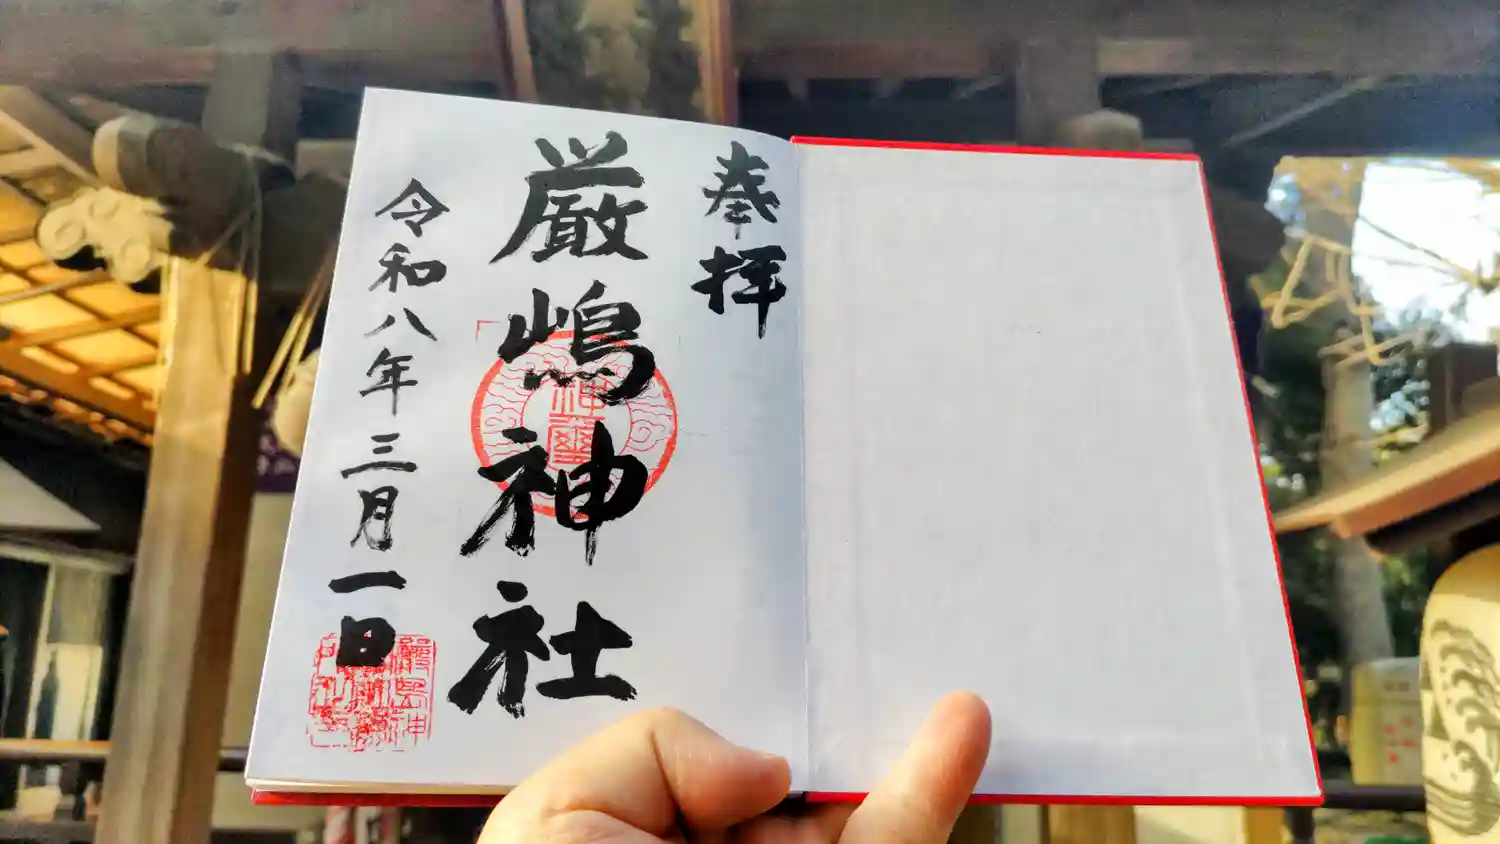 奉拝
厳嶋神社
神璽
令和八年三月一日